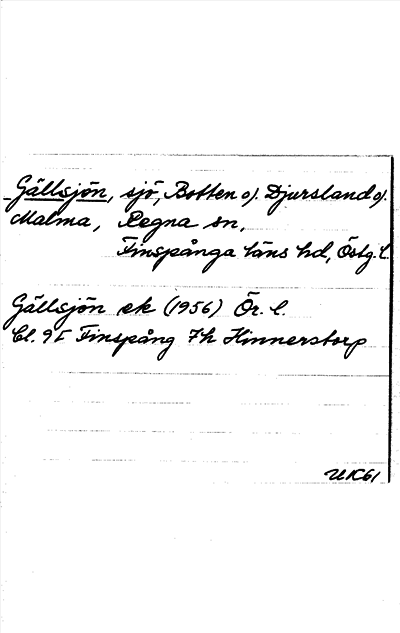 Gällsjön, sjö, Botten o). Djursland o).
Malma, Regna sn,
Finspånga läns hd, Östg. l.
Gällsjön ek (1956) Ör. l.
Bl. 9F Finspång 7h Hinnerstorp
UK61